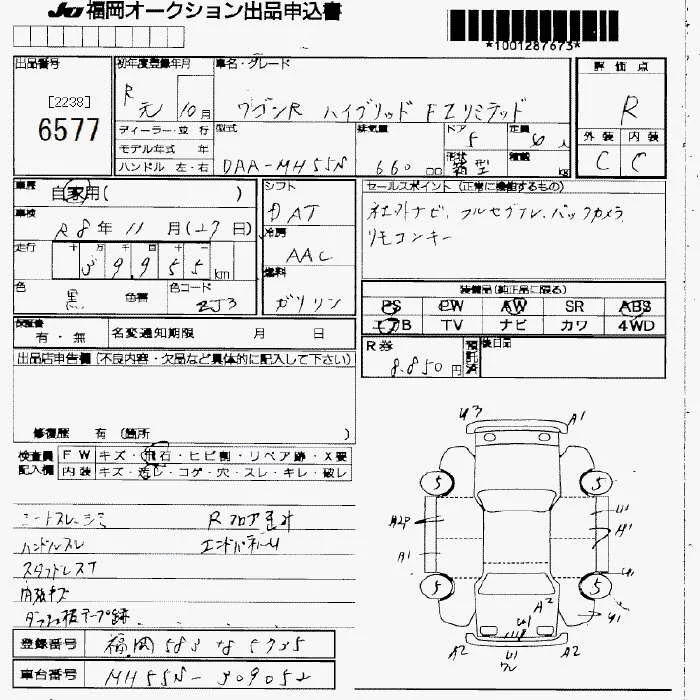 JU 福岡オークション出品申込書
*1001287673*
出品番号
[2238]
6577
初年度登録年月
R元年10月
車名・グレード
ワゴンR ハイブリッド FZリミテッド
評価点
R
外装 内装
C C
ディーラー・並行
モデル年式 年
ハンドル 左・右
型式
DAA-MH55N
排気量
660 cc
ドア
5
形状
箱型
定員
人
積載
kg
車歴
自家用( )
車検
R8年11月(27日)
走行
十万千百十
39955km
色
黒
色替
色コード
ZJ3
シフト
DAT
冷房
AAC
燃料
ガソリン
セールスポイント (正常に機能するもの)
ナビ、フルセグTV、バックカメラ
リモコンキー
装備品(純正品に限る)
PS PW AW SR ABS
エアB TV ナビ カワ 4WD
保証書
有・無
名変通知期限 月 日
R券
8,850円
預託済
後日品
出品店申告欄 (不良内容・欠品など具体的に記入して下さい)
修復歴 有 (箇所 )
検査員記入欄
FW キズ・飛石・ヒビ割・リペア跡・X要
内装 キズ・汚レ・コゲ・穴・スレ・キレ・破レ
シートスレ・シミ
Rフロア
ハンドルスレ
エンドパネルU
スタッドレスT
内張キズ
ダッシュ板テープ跡
U3 A1
5 5
A2P
A1
U1
A1
U1
5 5
A2
U1
U1
A2
U1
A2
登録番号
福岡583
車台番号
MH55N-309052